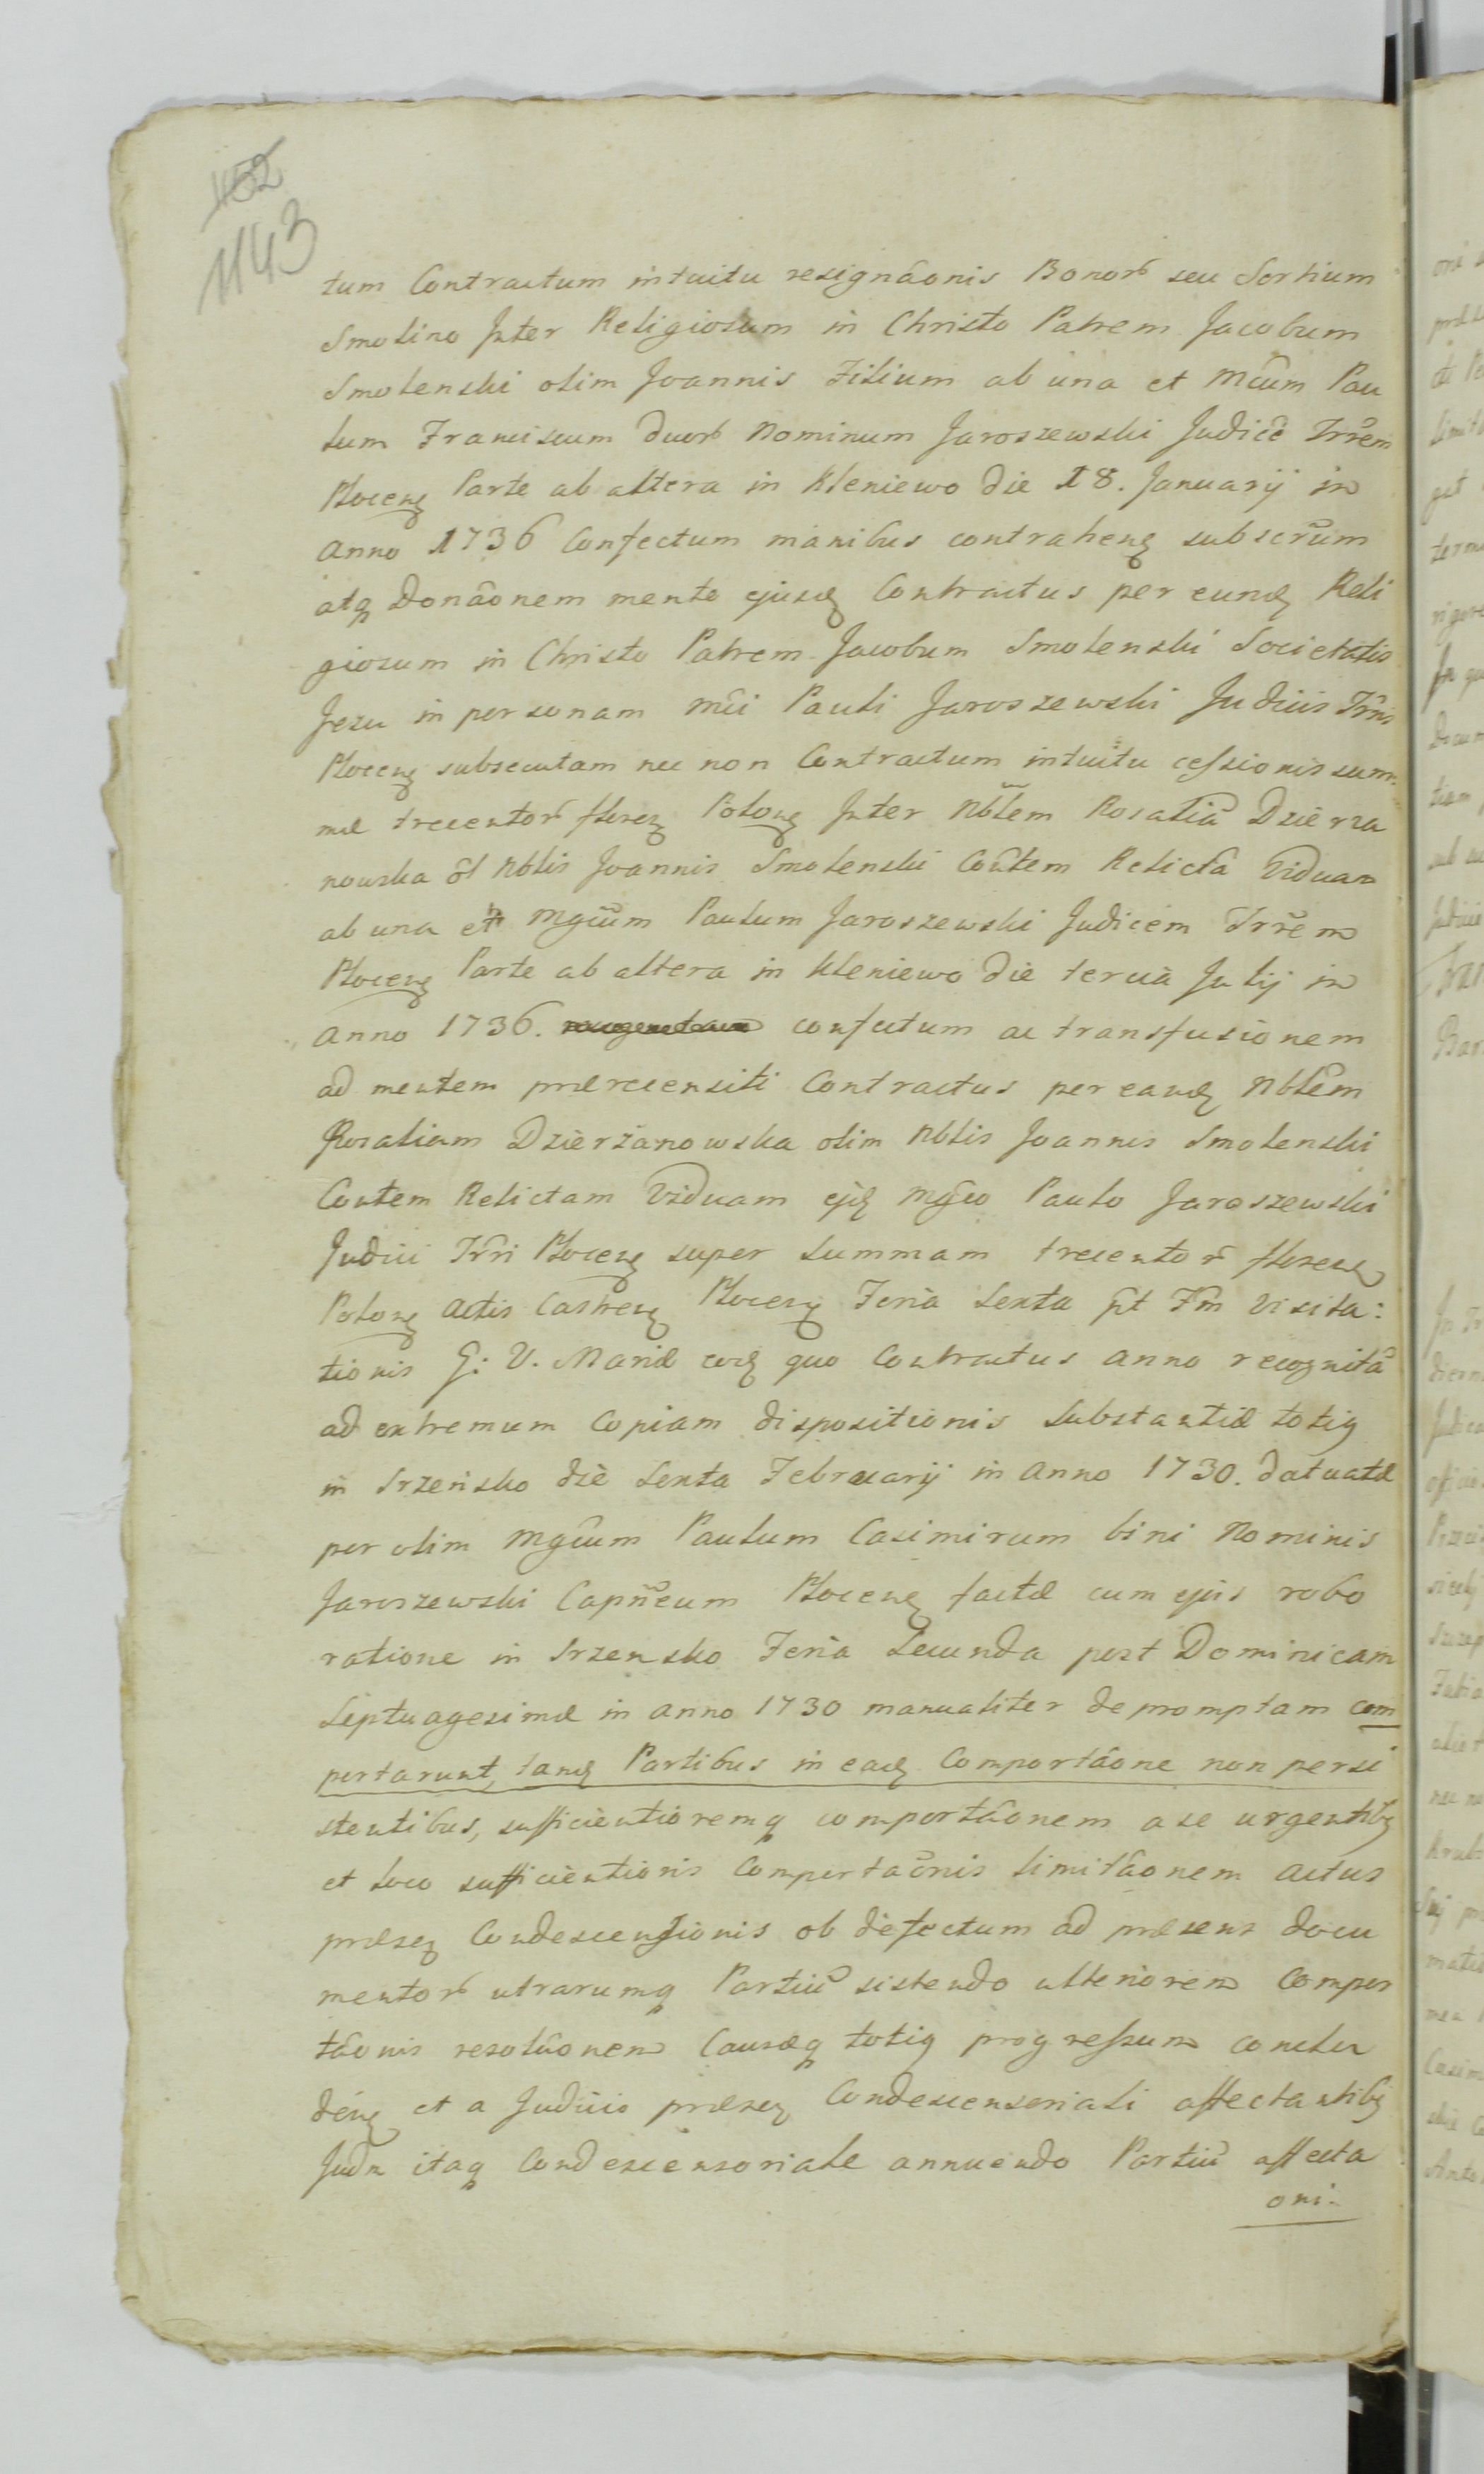 1152
1143
tum Contractum intuitu resignãonis Bonorũ seu Sortium
Smolino Inter Religiosum in Christo Patrem Jacobum
Smolenski olim Joannis Filium ab una et Mcũm Pau
lum Franciscum duorũ Nominum Jaroszewski Judicẽ Trrẽm
Plocenę Parte ab altera in Kleniewo die 18. Januarij in
anno 1736 Confectum manibus contrahenę subscrũm
atq Donãonem mente ejusdę Contractus per eundę Reli
giosum in Christo Patrem Jacobum Smolenski Societatis
Jesu in personam Mci Pauli Jaroszewski Judicis Trris
Plocenę subsecutam nec non Contractum intuitu cessionis sum
mæ trecentorũ florenę Polonę Inter Nblem Rosaliã Dzierza
nowska õl Nblis Joannis Smolenski Cõtem Relictã Viduam
ab una et Mgcũm Paulum Jaroszewski Judicem Trrẽm
Plocenę Parte ab altera in Kleniewo die tercia Julij in
anno 1736. confectum ac transfusionem
ad mentem præcensiti Contractus per eandę Nblẽm
Rosaliam Dzierżanowska olim Nblis Joannis Smolenski
Contem Relictam Viduam ejdę Mgco Paulo Jaroszewski
Judici Trri Plocenę super Summam trecentorũ florenę
Polonę actis Castrenę Plocenę Feria Sexta pt Fm Visita:
tionis G: V. Mariæ eodę quo Contractus anno recognitã
ad extremum Copiam dispositionis Substantiæ totię
in Srzeńsko die Sexta Februarij in anno 1730. datuatæ
per olim Mgcũm Paulum Casimirum bini Nominis
Jaroszewski Capñeum Plocenę factæ cum ejus robo
ratione in Srzensko Feria Secunda post Dominicam
Septuagesimæ in anno 1730 manualiter depromptam com
portarunt, tandę Partibus in eadę Comportãone non persi
stentibus, sufficientioremq comportãonem a se urgentibę
et loco sufficientionis Comportaõnis limitãonem actus
præsenę Condescensionis ob defectum ad præsens docu
mentorũ utrarumq Partiũ sistendo ulteriorem Compor
tãonis resolũonem Causæq totię progressum conclu
denę et a Judicio præsenę Condescensoriali affectantibę
Judm itaq Condescensoriale annuendo Partiũ affecta
oni.